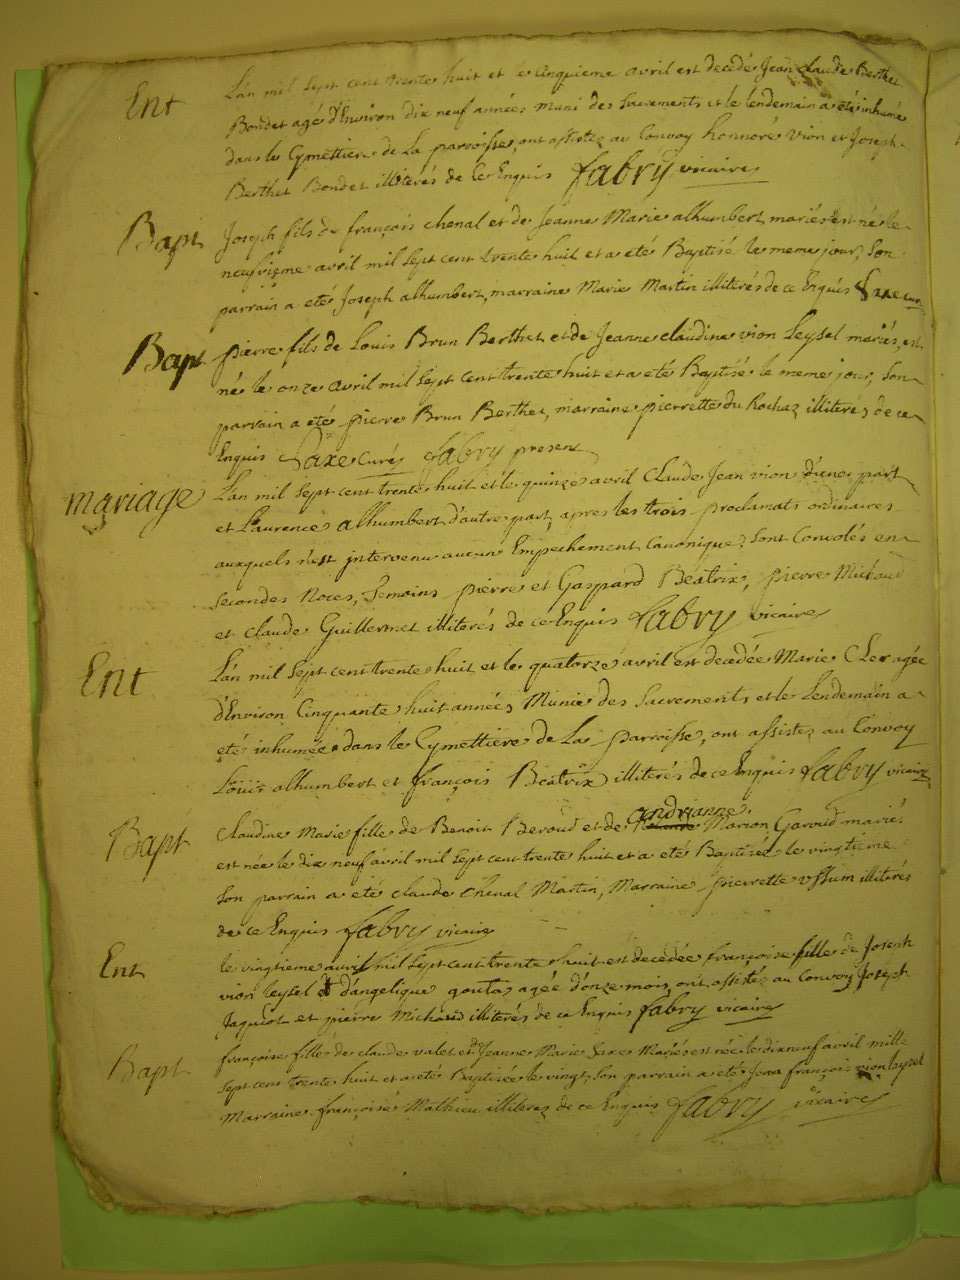 Ent
L'an mil sept cent trente huit et le cinquieme avril est decedé Jean Claude Berthet
Bondet agé d'Environ dix neuf années muni des Sacrements et le lendemain a été inhumé
dans le Cymettiere de La parroisse, ont assistez au Convoy honnoré Vion et Joseph
Berthet Bondet illiterés de ce Enquis fabry vicaire
Bapt
Joseph fils de françois chenal et de Jeanne Marie alhumbert mariés est né le
neufvieme avril mil sept cent trente huit et a eté Baptisé le meme jour, Son
parrain a eté Joseph alhumbert, marraine Marie Martin illiterés de ce Enquis Saxe curé
Bapt
pierre fils de Louis Brun Berthet et de Jeanne claudine vion Leysel mariés, est
né le onze avril mil sept cent trente huit et a eté Baptisé le meme jour, Son
parrain a eté pierre Brun Berthet, marraine pierrette du Rochaz illiterés de ce
Enquis Saxe Curé fabry present
mariage
L'an mil sept cent trente huit et le quinze avril Claude Jean vion d'une part
et Laurence alhumbert d'autre part, apres les trois proclamats ordinaires
auxquels n'est intervenu aucun Empechement Canonique, Sont Convolés en
secondes Noces, Temoins pierre et Gaspard Beatrix, pierre Michaud
et Claude Guillermet illiterés de ce Enquis fabry vicaire
Ent
L'an mil sept cent trente huit et le quatorze avril est decedée Marie Cler agée
d'Environ Cinquante huit années Munie des Sacrements, et le Lendemain a
eté inhumée dans le Cymettiere de La parroisse, ont assistez au Convoy
Louis alhumbert et françois Beatrix illiterés de ce Enquis fabry vicaire
Bapt
andrianne
Claudine Marie fille de Benoit Beroud et de Marion Garoud mariés
est née le dix neuf avril mil sept cent trente huit et a eté Baptisée le vingtieme
Son parrain a eté claude chenal Martin, Marraine pierrette illiterés
de ce Enquis fabry vicaire
Ent
le vingtieme avril mil sept cent trente huit est decedée françoise fille de Joseph
vion leysel et d'angelique goutas agée d'onze mois, ont assistés au Convoy Joseph
Jaquot et pierre Michaud illiterés de ce Enquis fabry vicaire
Bapt
françoise fille de claude valet et de Jeanne Marie Saxe Mariés est née le dix neuf avril mille
sept cent trente huit et a eté Baptisée le vingt, Son parrain a eté Jean françois vion leysel
Marraine françoise Mathieu illiterez de ce Enquis fabry vicaire